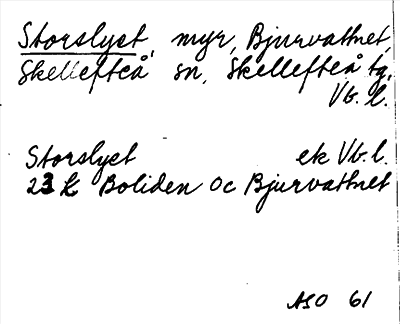 Storslyet, myr, Bjurvattnet,
Skellefteå sn, Skellefteå tg,
Vb. l.
Storslyet ek Vb. l.
23 k Boliden oc Bjurvattnet
ASO 61